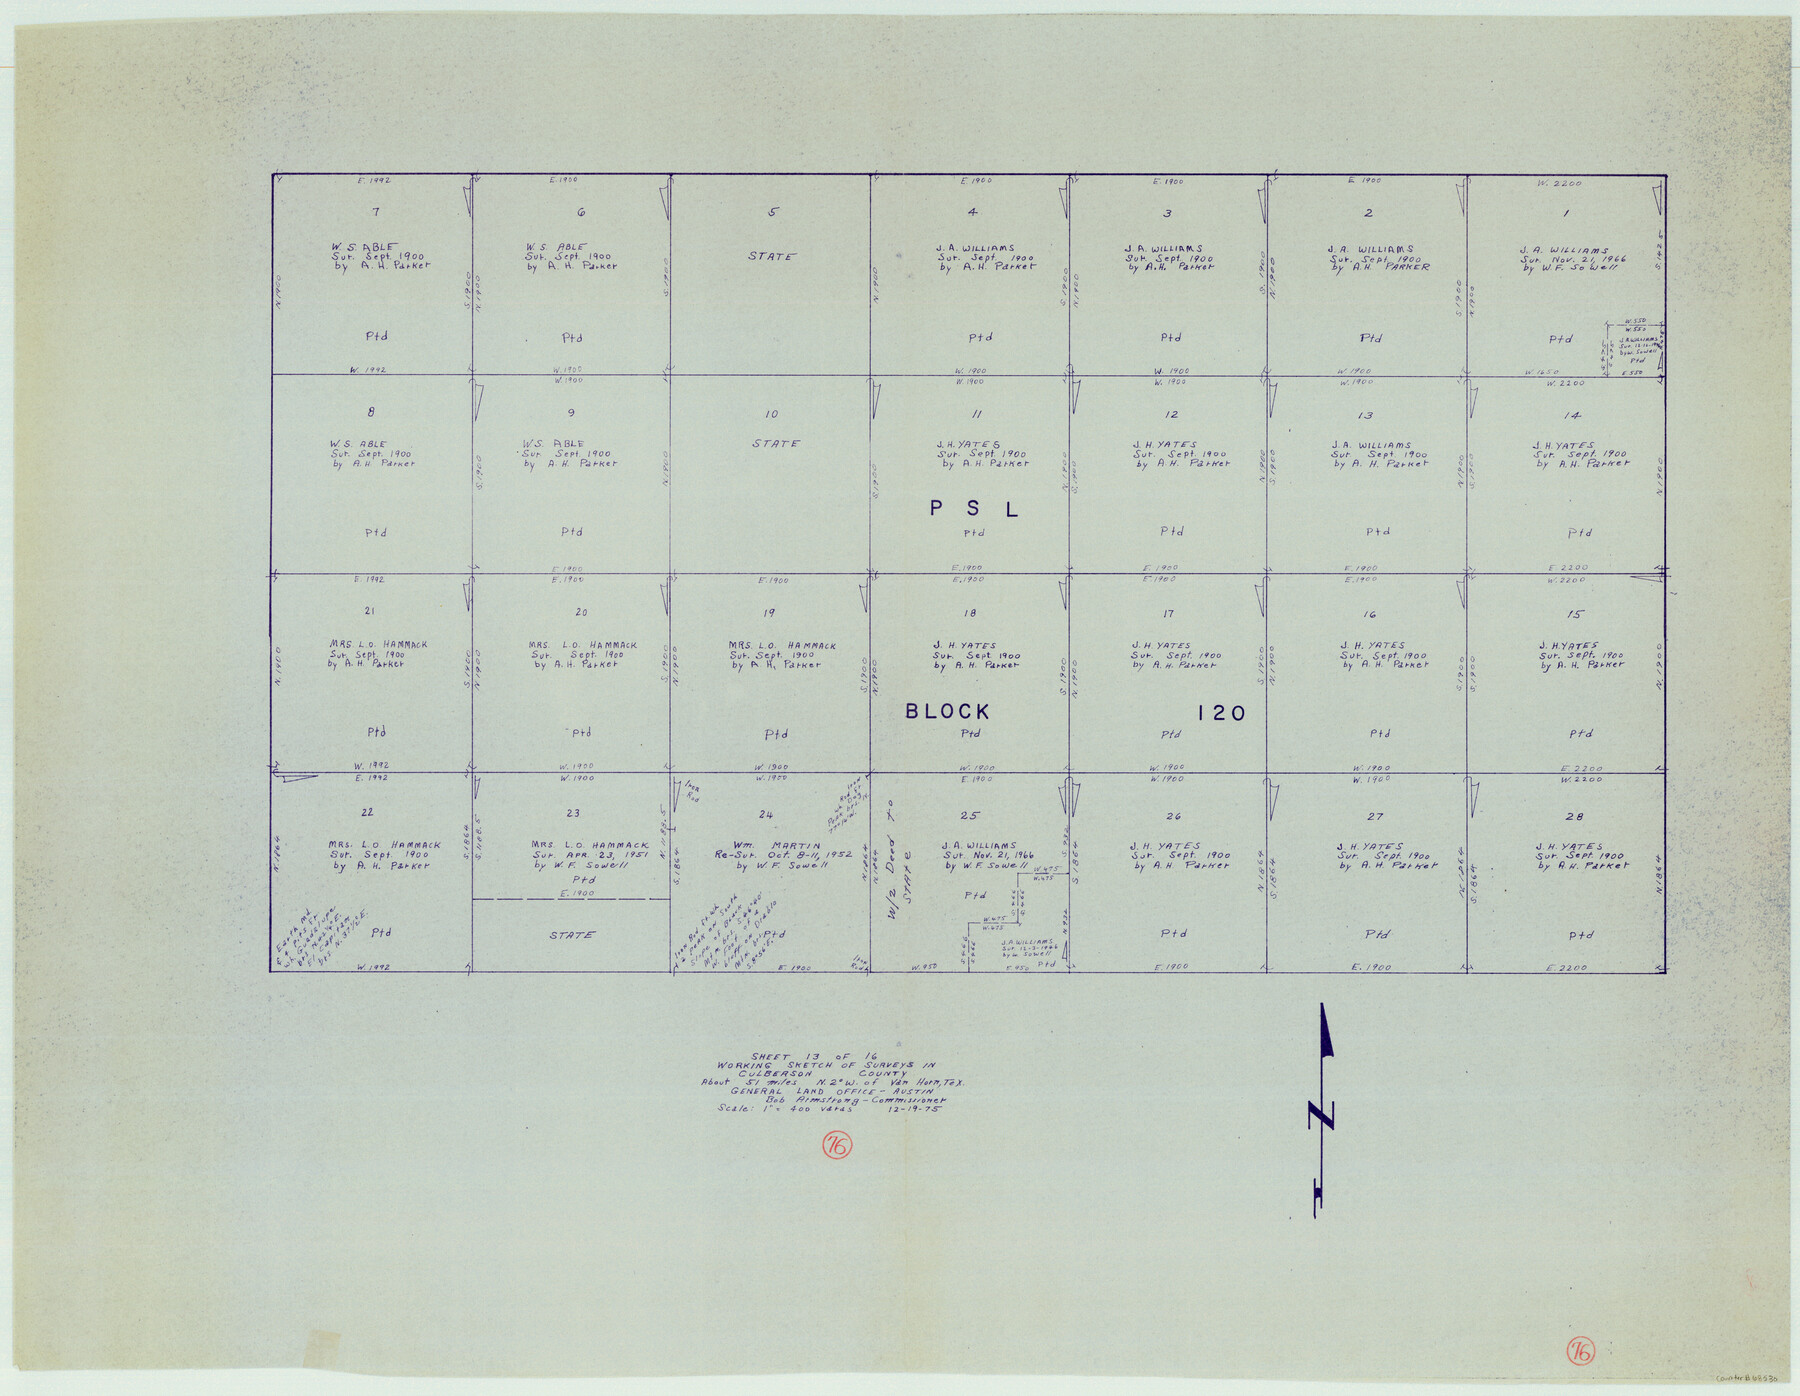 E. 1992
7
W. S. ABLE
Sur. Sept. 1900
by A. H. Parker
N. 1900
S. 1900
Ptd
W. 1992
E. 1900
6
W. S. ABLE
Sur. Sept. 1900
by A. H. Parker
N. 1900
S. 1900
Ptd
W. 1900
5
STATE
E. 1900
4
J. A. WILLIAMS
Sur. Sept. 1900
by A. H. Parker
N. 1900
S. 1900
Ptd
W. 1900
E. 1900
3
J. A. WILLIAMS
Sur. Sept. 1900
by A. H. Parker
N. 1900
S. 1900
Ptd
W. 1900
E. 1900
2
J. A. WILLIAMS
Sur. Sept. 1900
by A. H. PARKER
N. 1900
S. 1900
Ptd
W. 1900
W. 2200
1
J. A. WILLIAMS
Sur. Nov. 21, 1966
by W. F. Sowell
N. 1900
S. 1425
Ptd
W. 550
W. 550
J. A. WILLIAMS
by W. Sowell
Ptd
W. 1650
E. 550
8
W. S. ABLE
Sur. Sept. 1900
by A. H. Parker
Ptd
W. 1900
9
W. S. ABLE
Sur. Sept. 1900
by A. H. Parker
S. 1900
N. 1900
Ptd
E. 1900
10
STATE
W. 1900
11
J. H. YATES
Sur. Sept. 1900
by A. H. Parker
S. 1900
N. 1900
P S L
Ptd
E. 1900
W. 1900
12
J. H. YATES
Sur. Sept. 1900
by A. H. Parker
S. 1900
N. 1900
Ptd
E. 1900
W. 1900
13
J. A. WILLIAMS
Sur. Sept. 1900
by A. H. Parker
S. 1900
N. 1900
Ptd
E. 1900
W. 2200
14
J. H. YATES
Sur. Sept. 1900
by A. H. Parker
S. 1900
N. 1900
Ptd
E. 2200
E. 1992
21
MRS. L. O. HAMMACK
Sur. Sept. 1900
by A. H. Parker
N. 1900
S. 1900
Ptd
W. 1992
E. 1900
20
MRS. L. O. HAMMACK
Sur. Sept. 1900
by A. H. Parker
N. 1900
S. 1900
Ptd
W. 1900
E. 1900
19
MRS. L. O. HAMMACK
Sur. Sept. 1900
by A. H. Parker
N. 1900
S. 1900
Ptd
W. 1900
E. 1900
18
J. H. YATES
Sur. Sept. 1900
by A. H. Parker
N. 1900
S. 1900
BLOCK 120
Ptd
W. 1900
E. 1900
17
J. H. YATES
Sur. Sept. 1900
by A. H. Parker
N. 1900
S. 1900
Ptd
W. 1900
E. 1900
16
J. H. YATES
Sur. Sept. 1900
by A. H. Parker
N. 1900
S. 1900
Ptd
W. 1900
W. 2200
15
J. H. YATES
Sur. Sept. 1900
by A. H. Parker
S. 1900
N. 1900
Ptd
E. 2200
E. 1992
22
MRS. L. O. HAMMACK
Sur. Sept. 1900
by A. H. Parker
N. 1864
S. 1864
Ptd
W. 1992
W. 1900
23
MRS. L. O. HAMMACK
Sur. APR. 23, 1951
by W. F. Sowell
S. 1188.5
N. 1188.5
Ptd
E. 1900
STATE
W. 1900
Iron
Rod
24
Wm. MARTIN
Re-Sur. Oct. 8-11, 1952
by W. F. Sowell
S. 1864
N. 1864
Ptd
E. 1900
E. 1900
W/2 Deed to
STATE
25
J. A. WILLIAMS
Sur. Nov. 21, 1966
by W. F. Sowell
N. 1864
S. 932
Ptd
W. 475
W. 475
S. 466
S. 466
W. 475
W. 475
S. 466
S. 466
J. A. WILLIAMS
Sur. 12-3-1966
by W. Sowell
Ptd
N. 932
W. 950
E. 950
W. 1900
26
J. H. YATES
Sur. Sept. 1900
by A. H. Parker
S. 1864
N. 1864
Ptd
E. 1900
W. 1900
27
J. H. YATES
Sur. Sept. 1900
by A. H. Parker
S. 1864
N. 1864
Ptd
E. 1900
W. 2200
28
J. H. YATES
Sur. Sept. 1900
by A. H. Parker
S. 1864
N. 1864
Ptd
E. 2200
SHEET 13 OF 16
WORKING SKETCH OF SURVEYS IN
CULBERSON COUNTY
About 51 miles N. 2° W. of Van Horn, Tex.
GENERAL LAND OFFICE - AUSTIN
Bob Armstrong - Commissioner
Scale: 1" = 400 varas 12-19-75
76
N
76
Counter B 68530